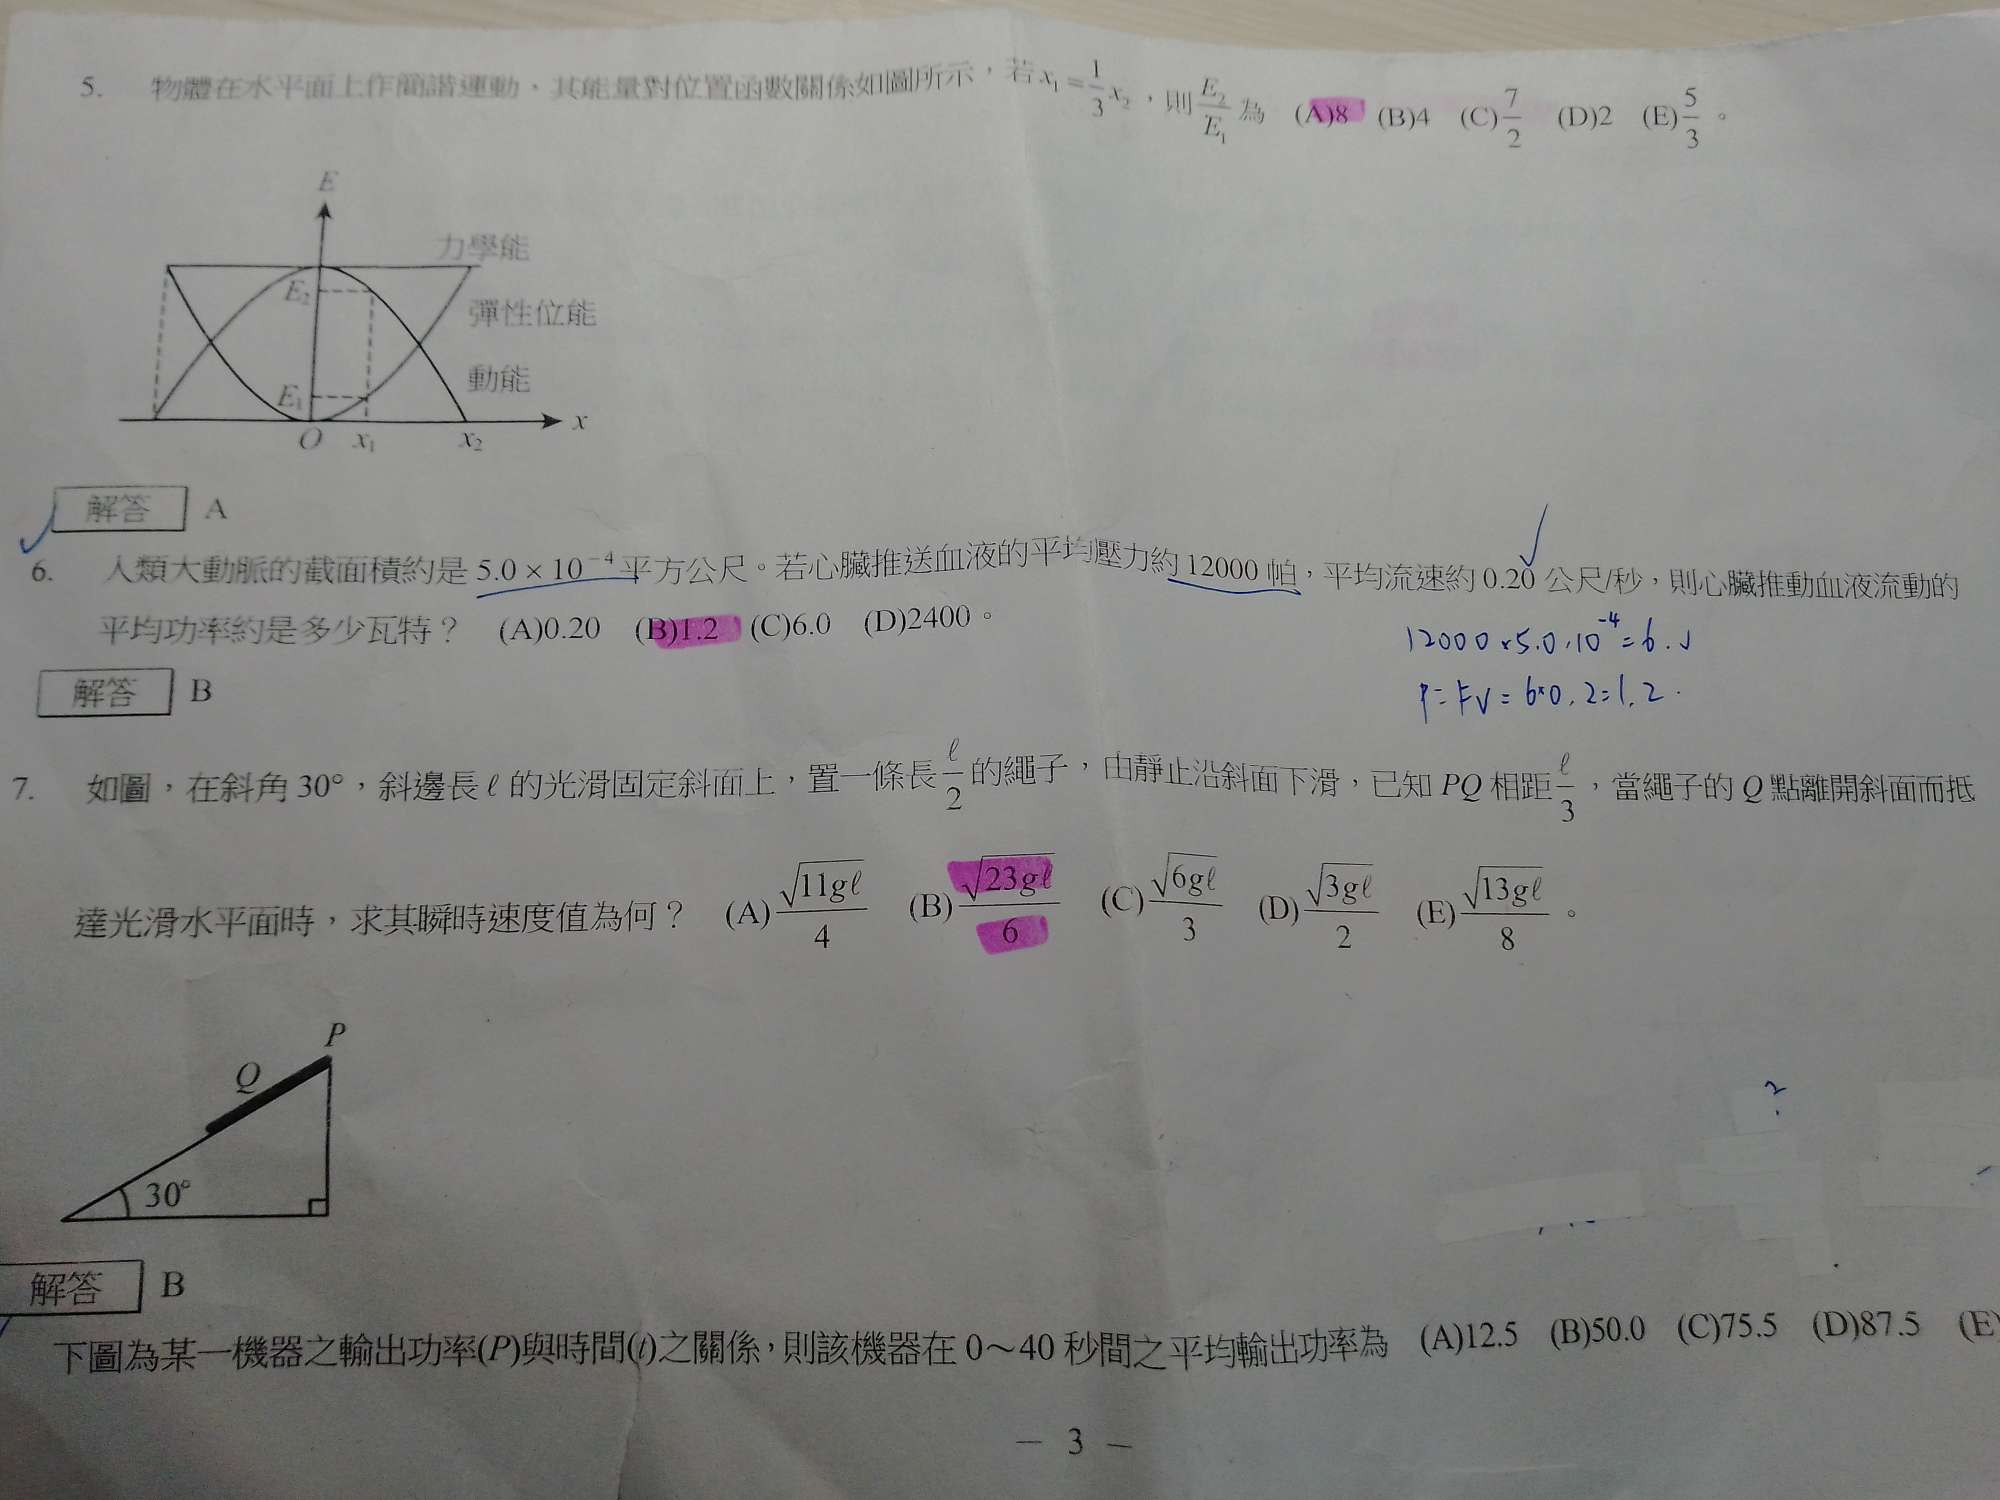 5. 物體在水平面上作簡諧運動，其能量對位置函數關係如圖所示，若 x₁ = 1/3 x₂，則 E₂/E₁ 為 (A)8 (B)4 (C)7/2 (D)2 (E)5/3。
E
力學能
E₂
彈性位能
動能
E₁
O x₁ x₂ x
解答 A
6. 人類大動脈的截面積約是 5.0 × 10⁻⁴ 平方公尺。若心臟推送血液的平均壓力約 12000 帕，平均流速約 0.20 公尺/秒，則心臟推動血液流動的
平均功率約是多少瓦特？ (A)0.20 (B)1.2 (C)6.0 (D)2400。
12000 × 5.0 · 10⁻⁴ = 6.
P = FV = 6×0.2 = 1.2.
解答 B
7. 如圖，在斜角 30°，斜邊長 ℓ 的光滑固定斜面上，置一條長 ℓ/2 的繩子，由靜止沿斜面下滑，已知 PQ 相距 ℓ/3，當繩子的 Q 點離開斜面而抵
達光滑水平面時，求其瞬時速度值為何？ (A)√11gℓ/4 (B)√23gℓ/6 (C)√6gℓ/3 (D)√3gℓ/2 (E)√13gℓ/8。
P
Q
30°
?
解答 B
下圖為某一機器之輸出功率(P)與時間(t)之關係，則該機器在 0～40 秒間之平均輸出功率為 (A)12.5 (B)50.0 (C)75.5 (D)87.5 (E)
－ 3 －